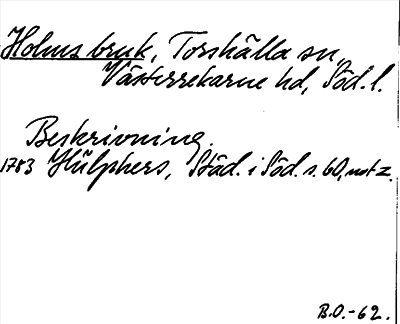 Holms bruk, Torshälla sn,
Västerrekarne hd, Söd. l.
Beskrivning.
1783 Hülphers, Städ. i Söd. s. 60, not z.
B.O.-62.